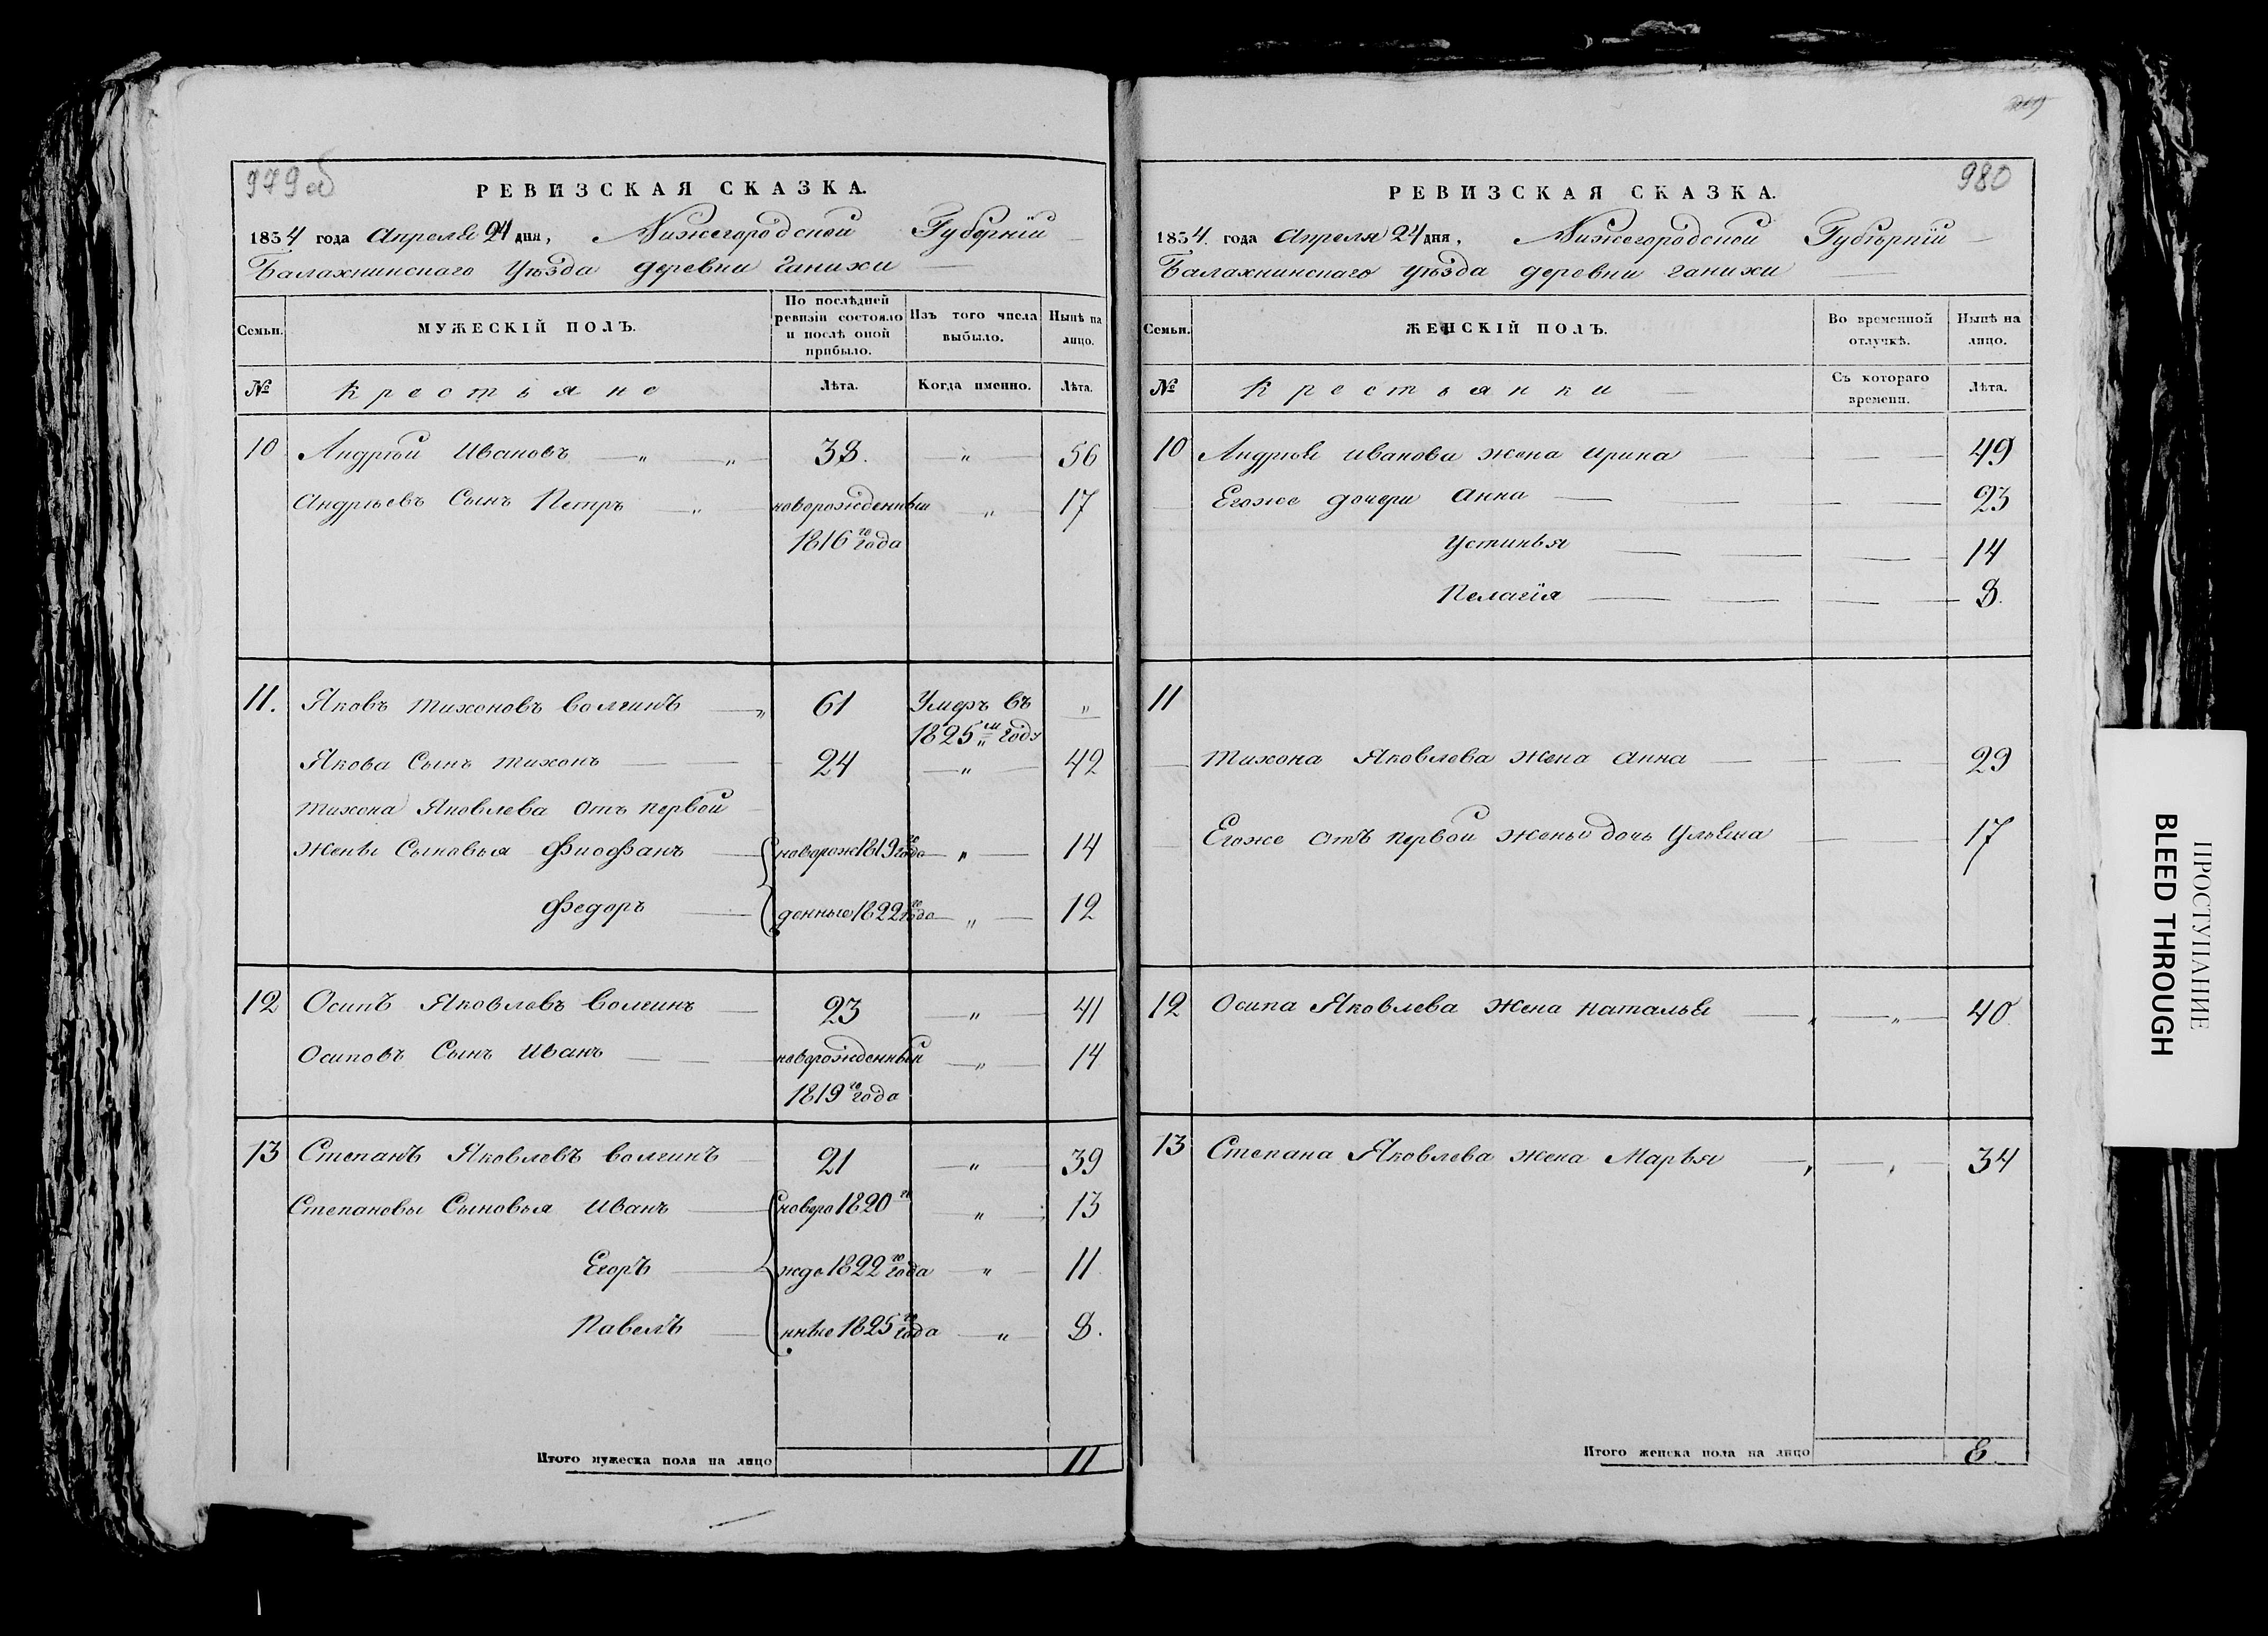 979 об
РЕВИЗСКАЯ СКАЗКА.
1834 года Апреля 24 дня, Нижегородской Губернїи
Балахнинскаго Уѣзда деревни Ганихи
Семьи.
МУЖЕСКІЙ ПОЛЪ.
По послѣдней ревизіи состояло и послѣ оной прибыло.
Изъ того числа выбыло.
Нынѣ на лицо.
№
Крестьяне
Лѣта.
Когда именно.
Лѣта.
10 Андрѣй Ивановъ — „ „ 38. — „ — 56
Андрѣевъ Сынъ Петръ — „ новорожденный — „ — 17
1816го года
11. Яковъ Тихоновъ Волгинъ — „ 61 Умеръ въ „
1825м году
Якова Сынъ Тихонъ — — 24 — „ — 42
Тихона Яковлева отъ первой
Жены Сыновья Фиофанъ — новорож 1819го года — „ — 14
Федоръ — денные 1822го года — „ — 12
12 Осипъ Яковлевъ Волгинъ — 23 — „ — 41
Осиповъ Сынъ Иванъ — — новорожденный — „ — 14
1819го года
13 Степанъ Яковлевъ Волгинъ 21 — „ — 39
Степановы Сыновья Иванъ — новоро 1820го — „ — 13
Егоръ — жде 1822го года — „ — 11
Павелъ — нные 1825го года — „ 8.
Итого мужеска пола на лицо 11
980
РЕВИЗСКАЯ СКАЗКА.
1834. года Апреля 24 дня, Нижегородской Губернїи —
Балахнинскаго уѣзда деревни Ганихи
Семьи.
ЖЕНСКІЙ ПОЛЪ.
Во временной отлучкѣ.
Нынѣ на лицо.
№
Крестьянки —
Съ котораго времени.
Лѣта.
10 Андрѣя Иванова жена Ирина — — — 49
Егоже дочери Анна — — — — 23
Устинья — — — 14
Пелагїя — — — 8.
11
Тихона Яковлева Жена Анна — — — 29
Егоже отъ первой Жены дочь Ульяна — — 17
12 Осипа Яковлева Жена Наталья — „ — „ — 40.
13 Степана Яковлева жена Марья — , — , — 34
Итого женска пола на лицо 8.
ПРОСТУПАНИЕ
BLEED THROUGH